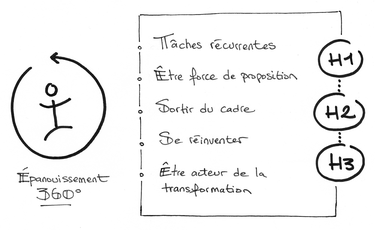 Tâches récurrentes
Être force de proposition
Sortir du cadre
Se réinventer
Être acteur de la
transformation
H1
H2
H3
Épanouissement
360°